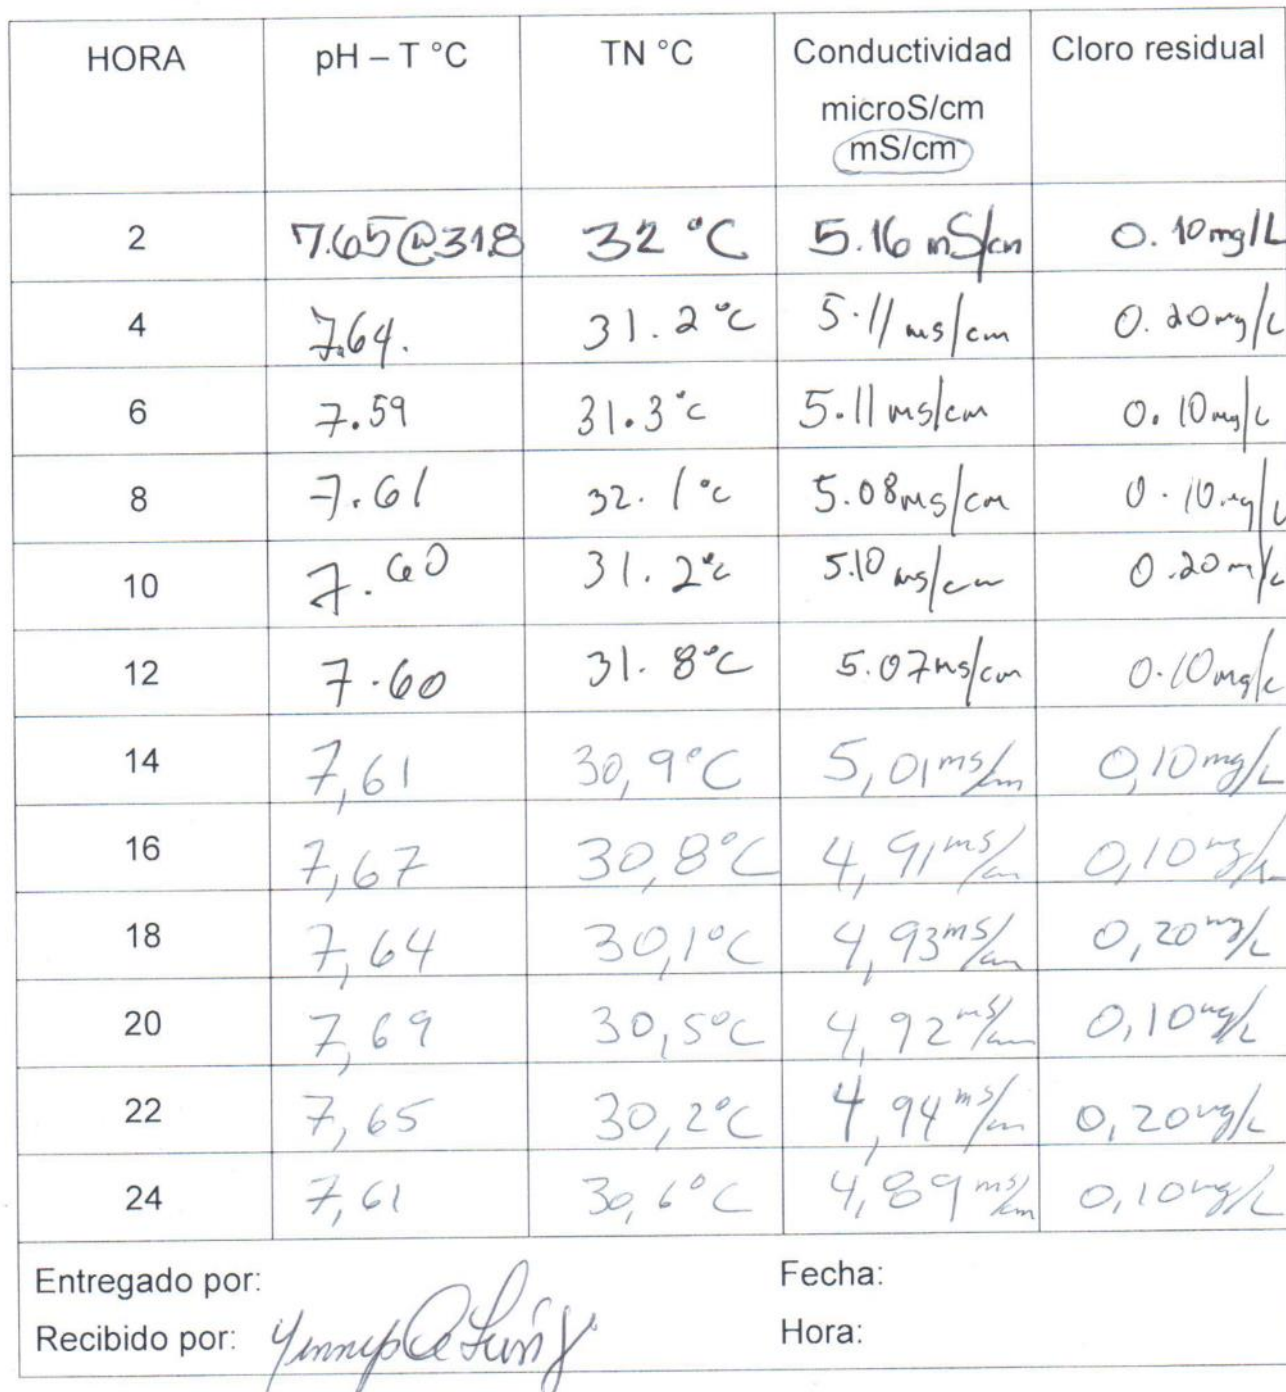 HORA pH – T °C TN °C Conductividad Cloro residual
microS/cm
mS/cm
2 7.65@31.8 32 °C 5.16 mS/cm 0.10 mg/L
4 7.64. 31.2 °C 5.11 ms/cm 0.20 mg/L
6 7.59 31.3 °C 5.11 ms/cm 0.10 mg/L
8 7.61 32.1 °C 5.08 ms/cm 0.10 mg/L
10 7.60 31.2 °C 5.10 ms/cm 0.20 m/L
12 7.60 31.8 °C 5.07 ms/cm 0.10 mg/L
14 7,61 30,9 °C 5,01 ms/cm 0,10 mg/L
16 7,67 30,8 °C 4,91 ms/cm 0,10 mg/L
18 7,64 30,1 °C 4,93 ms/cm 0,20 mg/L
20 7,69 30,5 °C 4,92 ms/cm 0,10 mg/L
22 7,65 30,2 °C 4,94 ms/cm 0,20 mg/L
24 7,61 30,6 °C 4,89 ms/cm 0,10 mg/L
Entregado por: Fecha:
Recibido por: Hora: